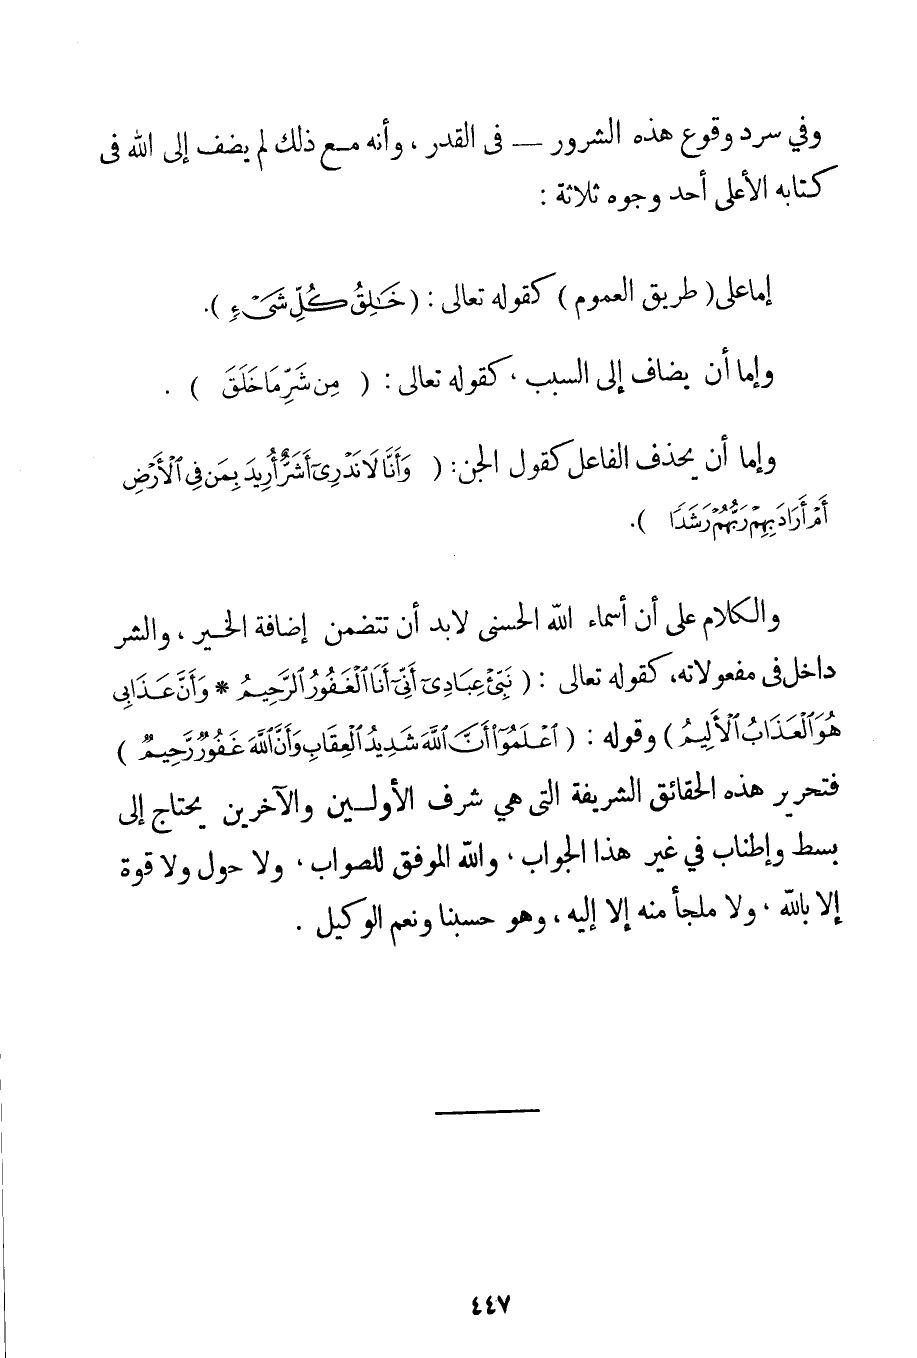 وفي سرد وقوع هذه الشرور — فى القدر ، وأنه مـع ذلك لم يضف إلى الله فى
كتابه الأعلى أحد وجوه ثلاثة :
إما على ( طريق العموم ) كقوله تعالى : ( خَٰلِقُ كُلِّ شَىْءٍ ).
وإما أن يضاف إلى السبب ، كقوله تعالى : ( مِن شَرِّ مَا خَلَقَ ) .
وإما أن يحذف الفاعل كقول الجن: ( وَأَنَّا لَا نَدْرِىٓ أَشَرٌّ أُرِيدَ بِمَن فِى ٱلْأَرْضِ
أَمْ أَرَادَ بِهِمْ رَبُّهُمْ رَشَدًا ).
والكلام على أن أسماء الله الحسنى لابد أن تتضمن إضافة الخـير ، والشر
داخل فى مفعولاته، كقوله تعالى : ( نَبِّئْ عِبَادِىٓ أَنِّىٓ أَنَا ٱلْغَفُورُ ٱلرَّحِيمُ * وَأَنَّ عَذَابِى
هُوَ ٱلْعَذَابُ ٱلْأَلِيمُ ) وقوله : ( ٱعْلَمُوٓا۟ أَنَّ ٱللَّهَ شَدِيدُ ٱلْعِقَابِ وَأَنَّ ٱللَّهَ غَفُورٌ رَّحِيمٌ )
فتحرير هذه الحقائق الشريفة التى هي شرف الأولـين والآخرين يحتاج إلى
بسط وإطناب في غير هذا الجواب ، والله الموفق للصواب ، ولا حول ولا قوة
إلا بالله ، ولا ملجأ منه إلا إليه ، وهو حسبنا ونعم الوكيل .
٤٤٧